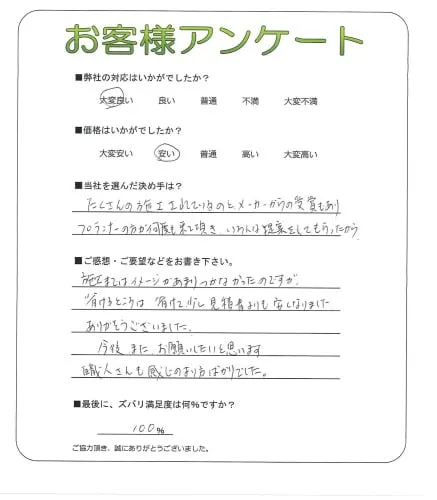 お客様アンケート
■弊社の対応はいかがでしたか？
大変良い 良い 普通 不満 大変不満
■価格はいかがでしたか？
大変安い 安い 普通 高い 大変高い
■当社を選んだ決め手は？
たくさんの施工されているのと、メーカーからの受賞もあり
プランナーの方が何度も来て頂き、いろんな提案をしてもらったから
■ご感想・ご要望などをお書き下さい。
施工まではイメージがあまりつかなかったのですが、
省けるところは省けて少し見積書よりも安くなりました
ありがとうございました。
今後また、お願いしたいと思います
職人さんも感じのよい方ばかりでした。
■最後に、ズバリ満足度は何％ですか？
100％
ご協力頂き、誠にありがとうございました。